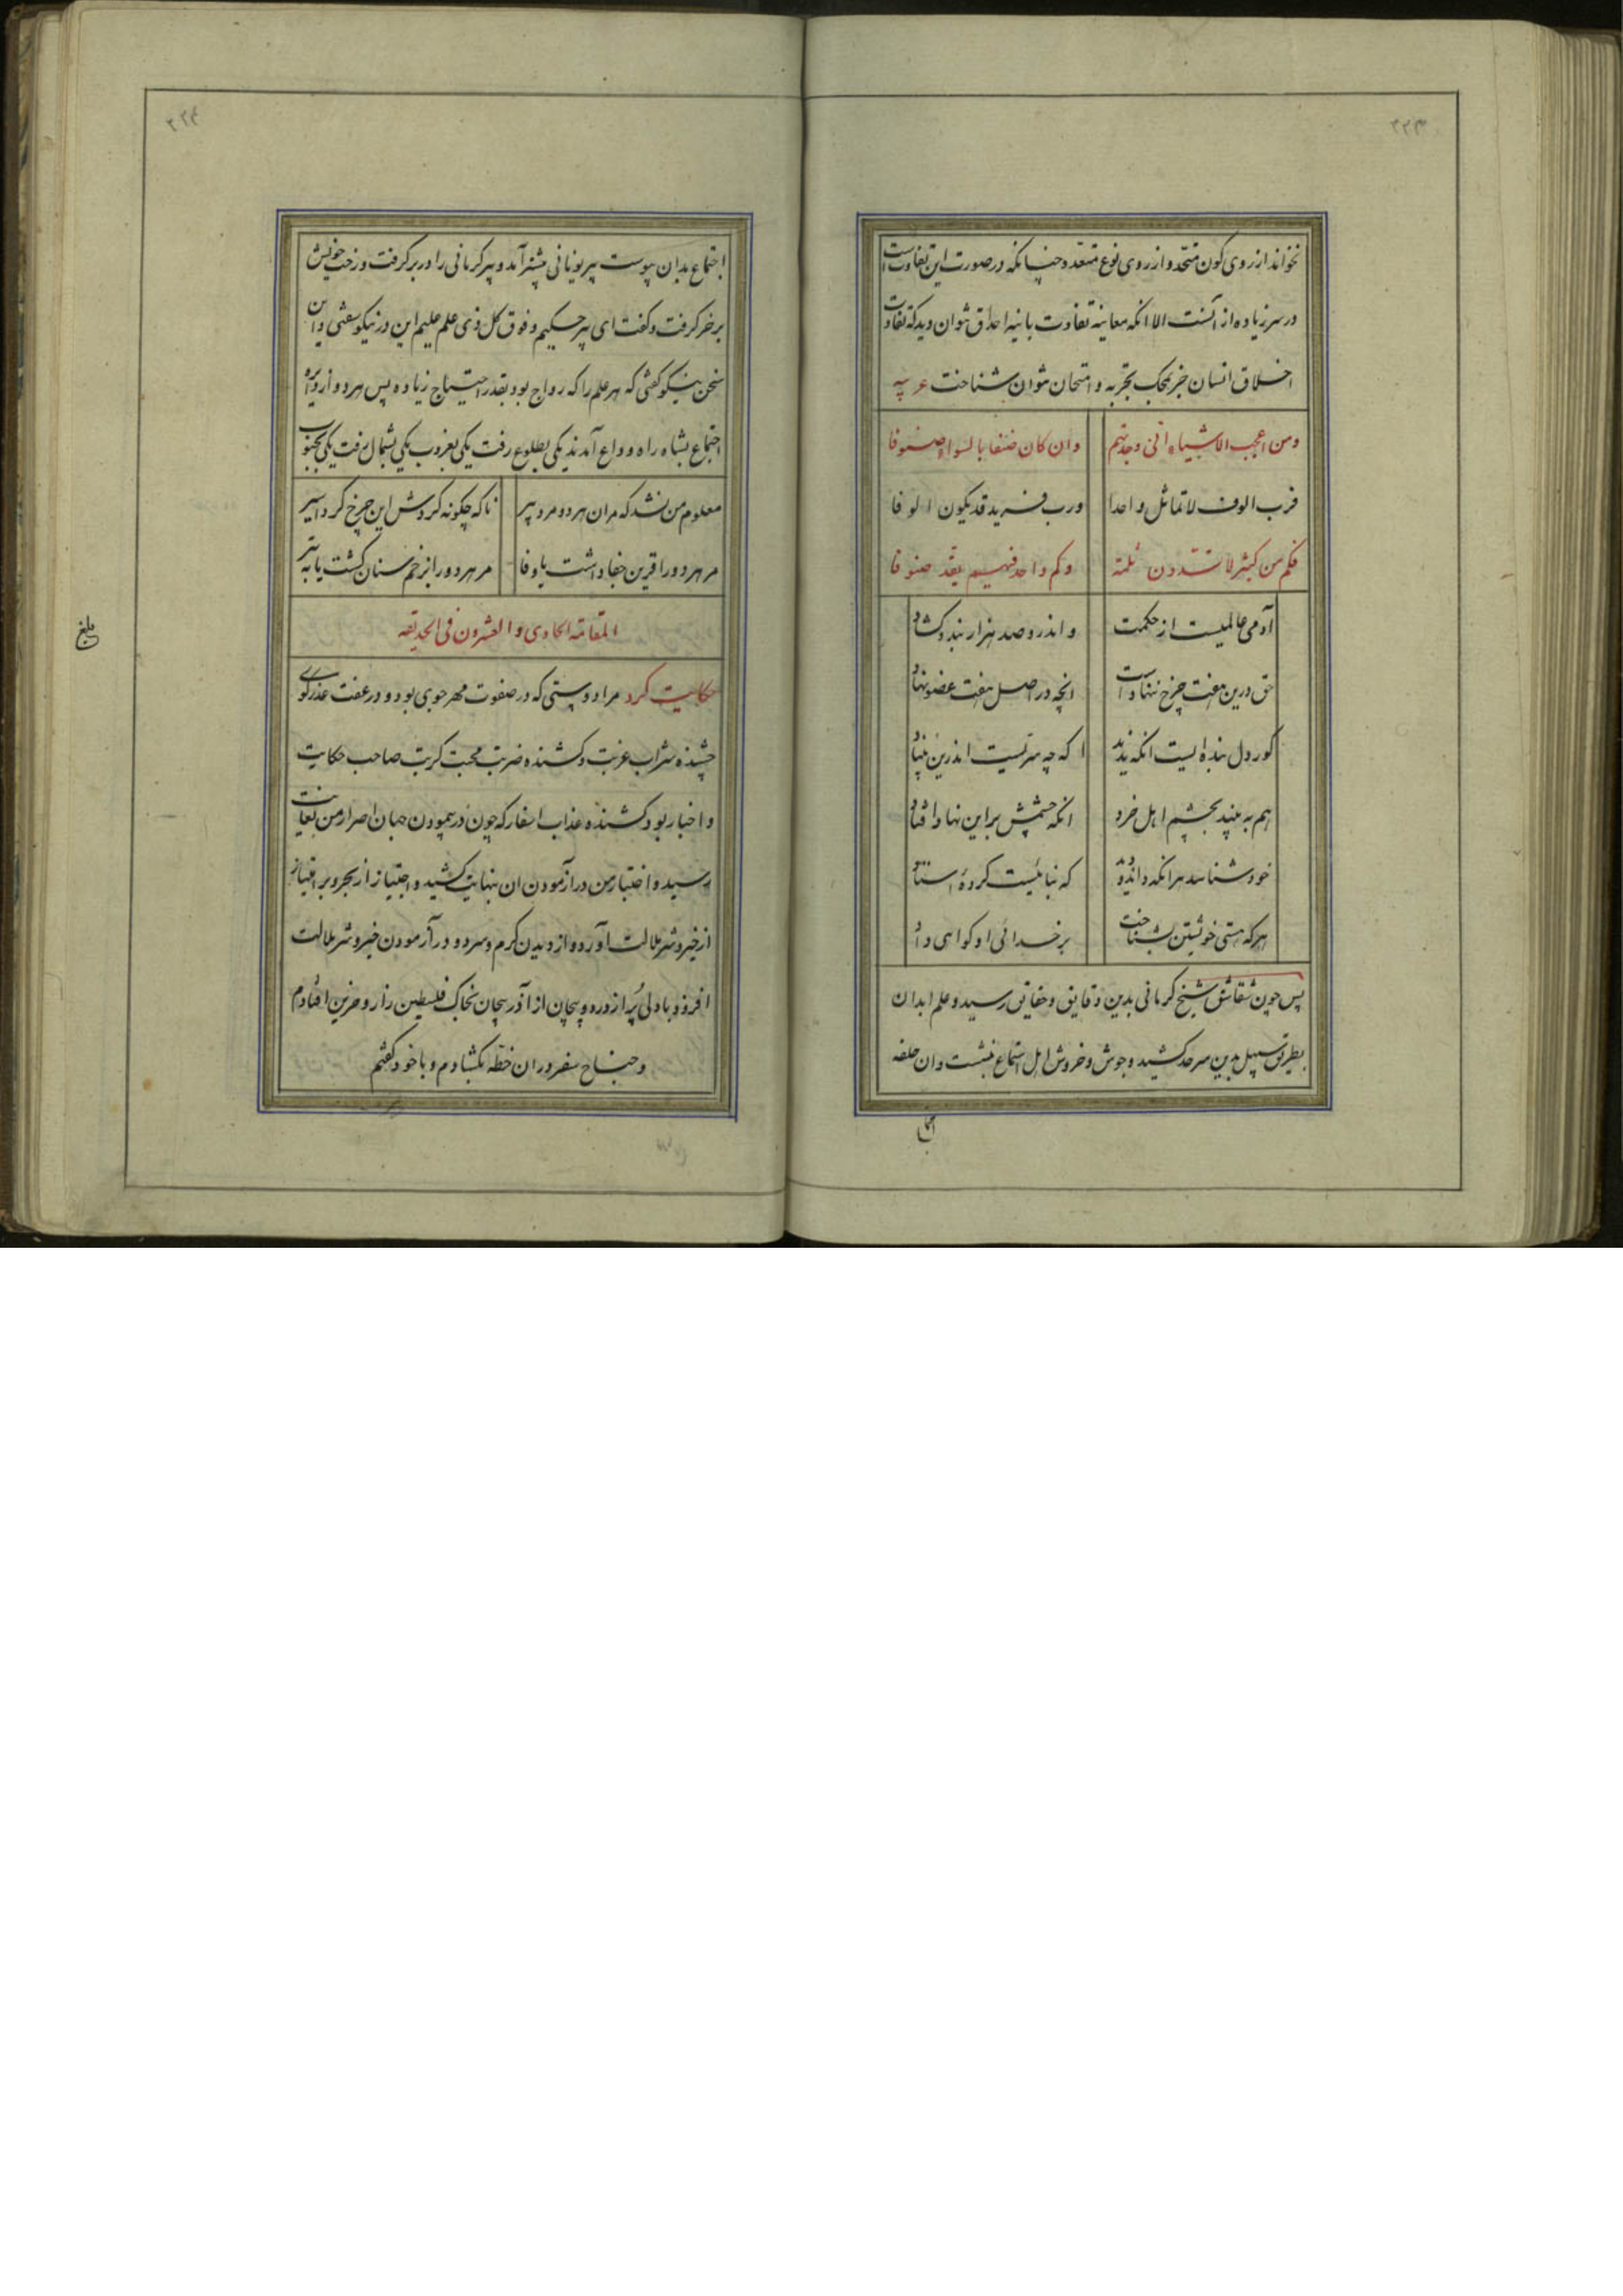 ۲۲۳
نخوانند از روی کون متحد و از روی نوع متعدد چنانکه در صورت این تفاوت است
در سر زیاده از آنست الا انکه معاینه تفاوت باینه احداق توان دید که تفاوت
اخلاق انسان جز بمحک تجربه و امتحان نتوان شناخت عربیه
ومن اعجب الاشیاء انی وجدتهم وان کان صنفا بالسواء صنوفا
فرب الوف لا تماثل واحدا ورب فرید قد یکون الوفا
فکم من کثیر لا تسدون ثلمة وکم واحد فیهم یعد صنوفا
آدمی عالمیست از حکمت و اندرو صد هزار بند و گشاد
حق درین هفت چرخ ننهادست انچه در اصل هفت عضو نهاد
کور دل بنده ایست انکه ندید که چه سرّیست اندرین بنیاد
هم به بیند بچشم اهل خرد انکه چشمش براین نهاد افتاد
خود شناسد هر انکه داند دید که بنائیست کردهٔ استاد
هرکه هستی خویشتن بشناخت بر خدائی او کواهی داد
پس چون شقاشق شیخ کرمانی بدین دقایق و حقایق رسید و علم ابدان
بطریق سبیل بدین سرحد کشید و جوش و خروش اهل استماع بنشست و ان حلقه
۲۲۴
اجتماع بدان پیوست پیر یونانی پیشتر آمد و پیر کرمانی را در بر گرفت و رخت خویش
بر خر گرفت و گفت ای پیر حکیم و فوق کل ذی علم علیم این در نیکو سفتی و این
سخن نیکو گفتی که هر علم را که رواج بود بقدر احتیاج زیاده پس هر دو از دایره
اجتماع بشاه راه وداع آمدند یکی بطلوع رفت یکی بغروب یکی بشمال رفت یکی بجنوب
معلوم من نشد که مران هر دو مرد پیر تا که چگونه گردش این چرخ کرد اسیر
مر هر دو را قرین جفا داشت یا وفا مر هر دو را بزخم سنان کشت یا به تیر
المقامة الحادی والعشرون فی الحدیقه
حکایت کرد مرا دوستی که در صفوت مهرجوی بود و در عفت عذرگوی
چشنده شراب غربت و کشنده ضربت محبت کربت صاحب حکایت
و اخبار بود کشنده عذاب اسفار که چون در پیمودن جهان اصرار من بغایت
رسید و اختبار من در آزمودن ان بنهایت کشید و اجتیاز از بحر و بر امتیاز
از خیر و شر ملالت آورد و از دیدن کرم و سرد و در آزمودن خیر و شر ملالت
افزود با دلی پر از درد و پیچان از آذربیجان بخاک فلسطین زار و حزین افتادم
و جناح سفر در ان خطه بگشادم و با خود گفتم
بلغ